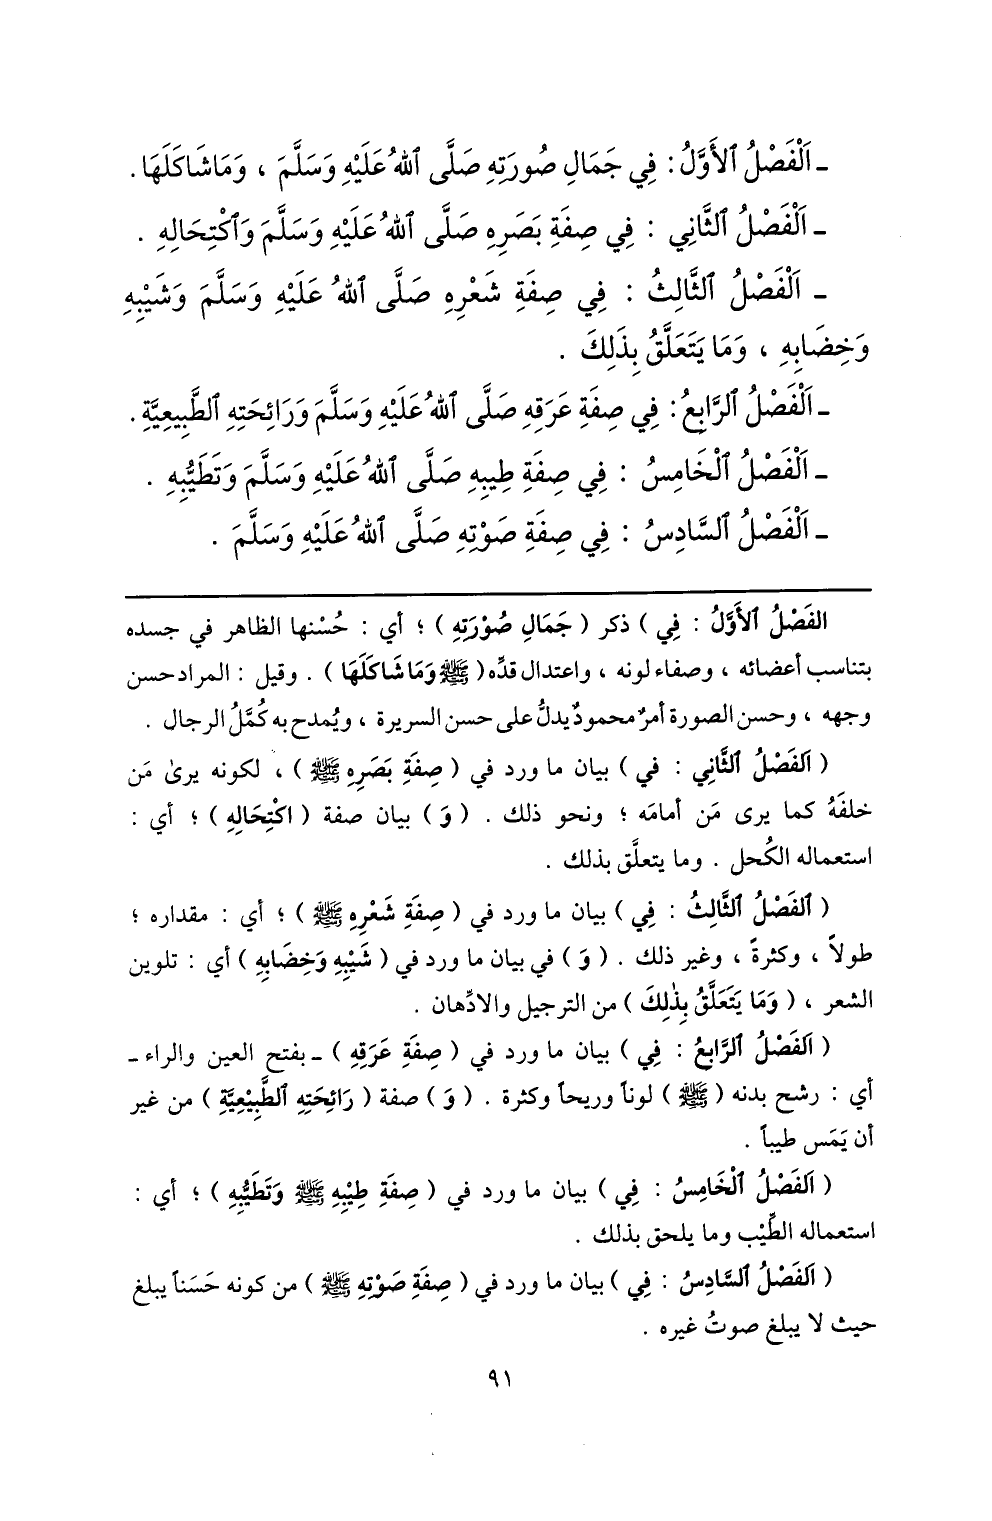 ـ اَلْفَصْلُ ٱلأَوَّلُ : فِي جَمَالِ صُورَتِهِ صَلَّى ٱللهُ عَلَيْهِ وَسَلَّمَ ، وَمَا شَاكَلَهَا .
ـ اَلْفَصْلُ ٱلثَّانِي : فِي صِفَةِ بَصَرِهِ صَلَّى ٱللهُ عَلَيْهِ وَسَلَّمَ وَٱكْتِحَالِهِ .
ـ اَلْفَصْلُ ٱلثَّالِثُ : فِي صِفَةِ شَعْرِهِ صَلَّى ٱللهُ عَلَيْهِ وَسَلَّمَ وَشَيْبِهِ
وَخِضَابِهِ ، وَمَا يَتَعَلَّقُ بِذَلِكَ .
ـ اَلْفَصْلُ ٱلرَّابِعُ : فِي صِفَةِ عَرَقِهِ صَلَّى ٱللهُ عَلَيْهِ وَسَلَّمَ وَرَائِحَتِهِ ٱلطَّبِيعِيَّةِ .
ـ اَلْفَصْلُ ٱلْخَامِسُ : فِي صِفَةِ طِيبِهِ صَلَّى ٱللهُ عَلَيْهِ وَسَلَّمَ وَتَطَيُّبِهِ .
ـ اَلْفَصْلُ ٱلسَّادِسُ : فِي صِفَةِ صَوْتِهِ صَلَّى ٱللهُ عَلَيْهِ وَسَلَّمَ .
الفَصْلُ ٱلأَوَّلُ : فِي ) ذكر ( جَمَالِ صُوْرَتِهِ ) ؛ أي : حُسْنها الظاهر في جسده
بتناسب أعضائه ، وصفاء لونه ، واعتدال قدِّه ( ﷺ وَمَا شَاكَلَهَا ) . وقيل : المراد حسن
وجهه ، وحسن الصورة أمرٌ محمودٌ يدلُّ على حسن السريرة ، ويُمدح به كُمَّلُ الرجال .
( اَلفَصْلُ ٱلثَّانِي : في ) بيان ما ورد في ( صِفَةِ بَصَرِهِ ﷺ ) ، لكونه يرىٰ مَن
خلفَهُ كما يرى مَن أمامَه ؛ ونحو ذلك . ( وَ ) بيان صفة ( اكْتِحَالِهِ ) ؛ أي :
استعماله الكُحل . وما يتعلَّق بذلك .
( ٱلفَصْلُ ٱلثَّالِثُ : فِي ) بيان ما ورد في ( صِفَةِ شَعْرِهِ ﷺ ) ؛ أي : مقداره ؛
طولاً ، وكثرةً ، وغير ذلك . ( وَ ) في بيان ما ورد في ( شَيْبِهِ وَخِضَابِهِ ) أي : تلوين
الشعر ، ( وَمَا يَتَعَلَّقُ بِذٰلِكَ ) من الترجيل والادِّهان .
( اَلفَصْلُ ٱلرَّابِعُ : فِي ) بيان ما ورد في ( صِفَةِ عَرَقِهِ ) ـ بفتح العين والراء ـ
أي : رشح بدنه ( ﷺ ) لوناً وريحاً وكثرة . ( وَ ) صفة ( رَائِحَتِهِ ٱلطَّبِيْعِيَّةِ ) من غير
أن يَمَس طيباً .
( اَلفَصْلُ ٱلْخَامِسُ : فِي ) بيان ما ورد في ( صِفَةِ طِيْبِهِ ﷺ وَتَطَيُّبِهِ ) ؛ أي :
استعماله الطِّيْب وما يلحق بذلك .
( اَلفَصْلُ ٱلسَّادِسُ : فِي ) بيان ما ورد في ( صِفَةِ صَوْتِهِ ﷺ ) من كونه حَسَناً يبلغ
حيث لا يبلغ صوتُ غيره .
٩١